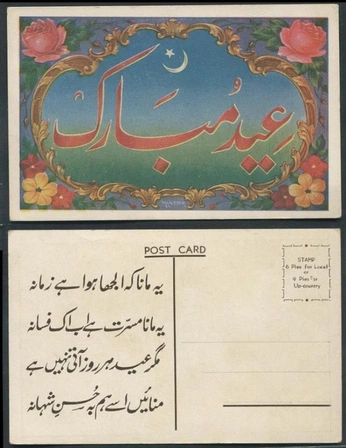 عید مُبارک
POST CARD
یہ مانا کہ الجھا ہوا ہے زمانہ
یہ مانا مسرّت ہے اب اک فسانہ
مگر عید ہر روز آتی نہیں ہے
منائیں اسے ہم بہ حُسنِ شہانہ
STAMP
6 Pies for Local
or
9 Pies for
Up-country